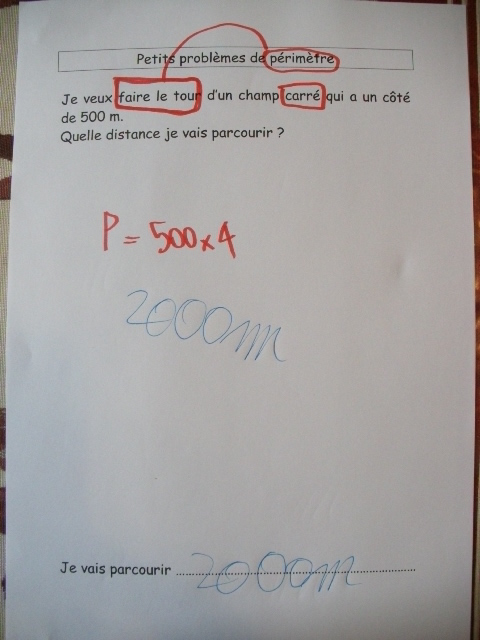 Petits problèmes de périmètre
Je veux faire le tour d'un champ carré qui a un côté
de 500 m.
Quelle distance je vais parcourir ?
P = 500 x 4
2000m
Je vais parcourir ........................ 2000m